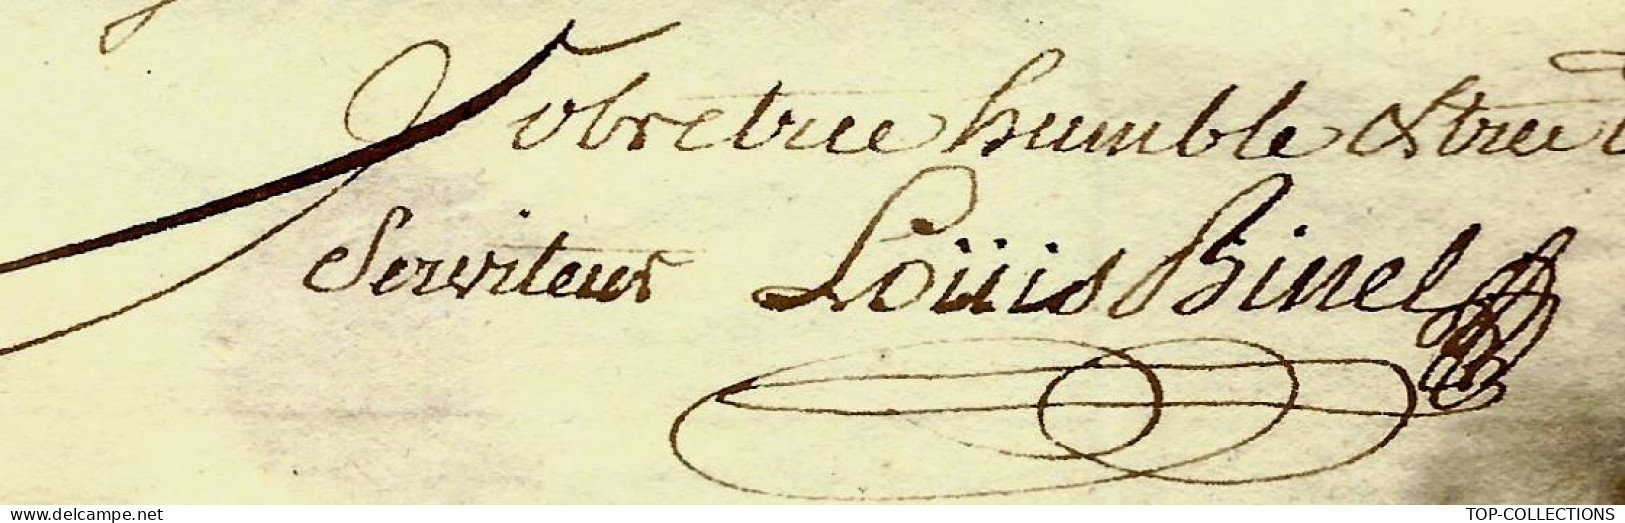 Votre tree humble & tree
Serviteur Loüis Binel
www.delcampe.net
TOP-COLLECTIONS